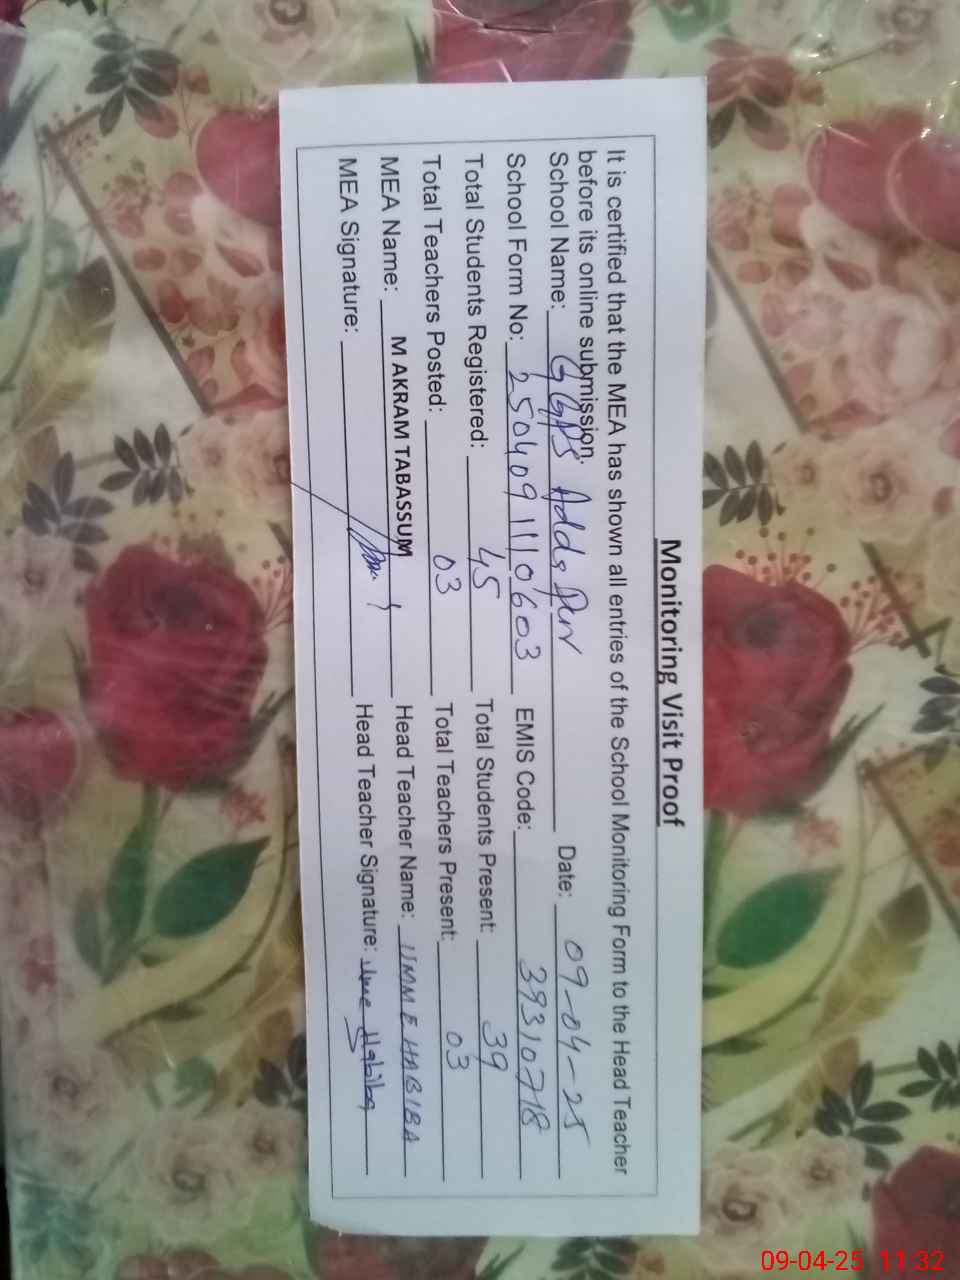 Monitoring Visit Proof
It is certified that the MEA has shown all entries of the School Monitoring Form to the Head Teacher
before its online submission.
School Name: GGPS Adda Date: 09-04-25
School Form No: 2504091110603 EMIS Code: 39310718
Total Students Registered: 45 Total Students Present: 39
Total Teachers Posted: 03 Total Teachers Present: 03
MEA Name: M AKRAM TABASSUM Head Teacher Name: UMME HABIBA
MEA Signature: Head Teacher Signature: Ume Habiba
09-04-25 11:32